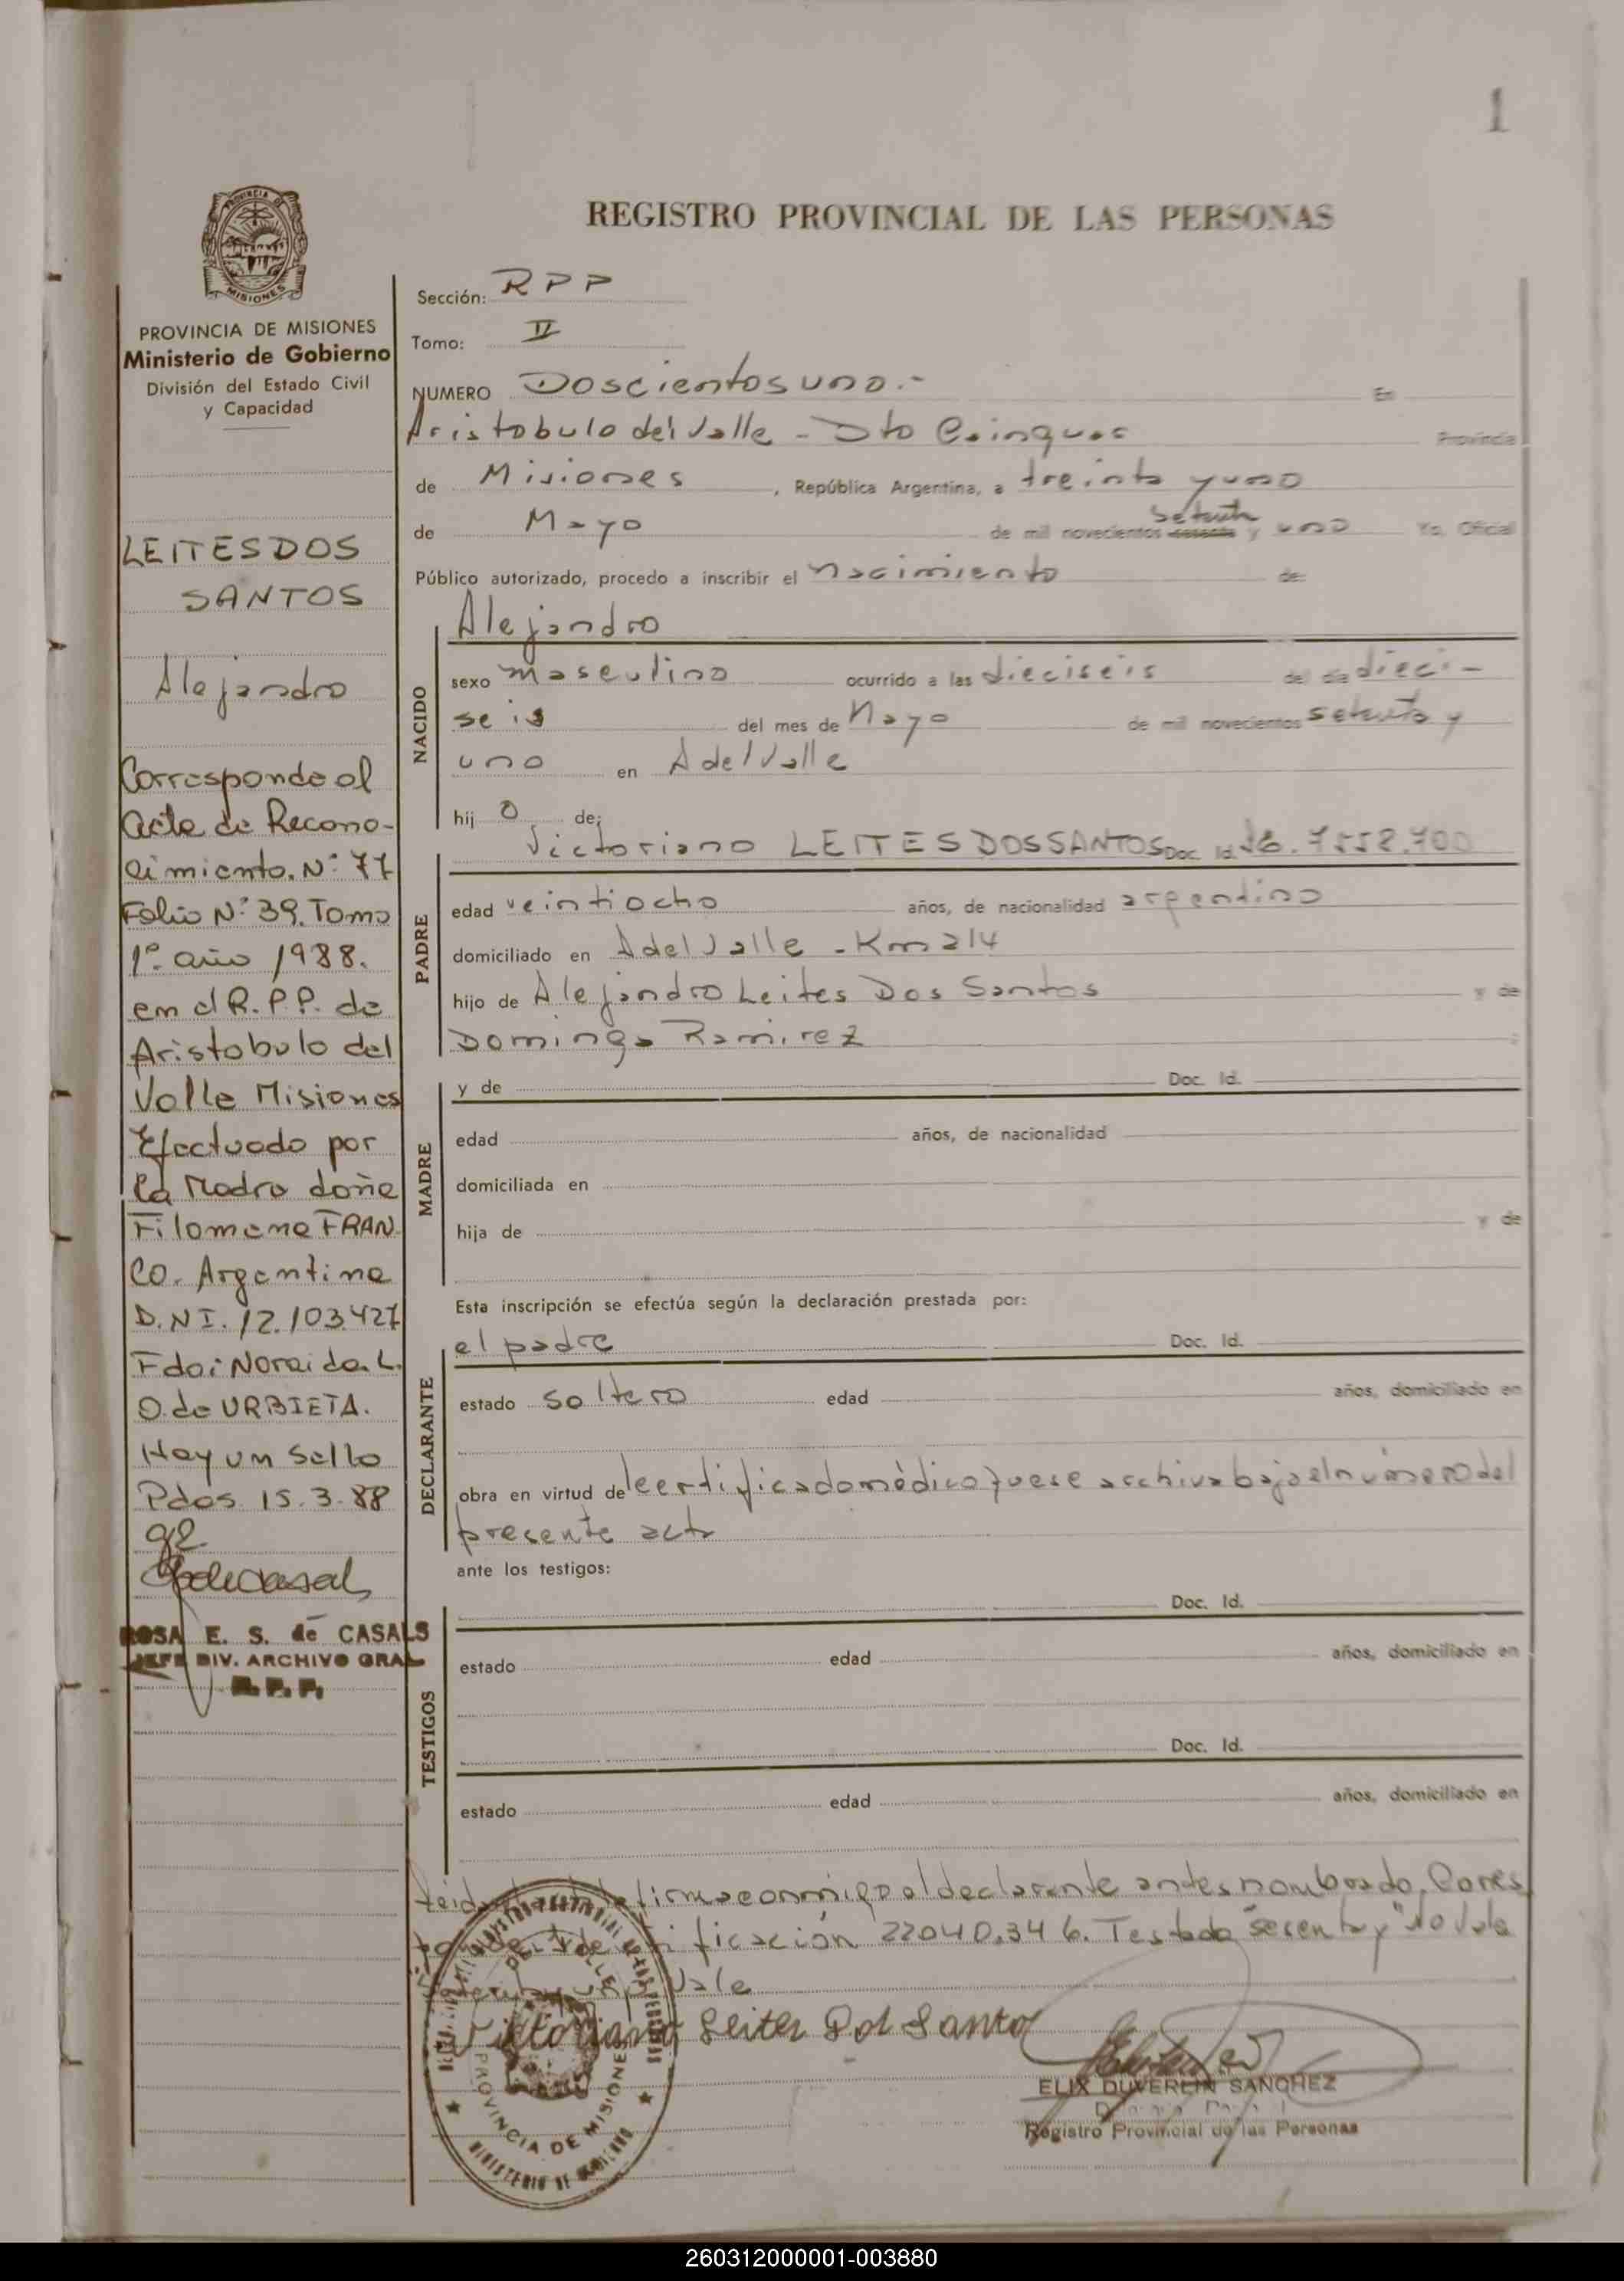 1
REGISTRO PROVINCIAL DE LAS PERSONAS
PROVINCIA DE MISIONES
Ministerio de Gobierno
División del Estado Civil
y Capacidad
LEITES DOS
SANTOS
Alejandro
Corresponde al
Acta de Recono-
cimiento. N° 77
Folio N° 39. Tomo
1° año 1988.
en el R.P.P. de
Aristobulo del
Valle Misiones
Efectuado por
la Madre doña
Filomena FRAN
CO. Argentina
D.N.I. 12.103.427
Fdo: Noraida L.
O. de URBIETA.
Hay un sello
Pdas. 15.3.88
ROSA E. S. de CASALS
JEFE DIV. ARCHIVO GRAL
R. P. P.
Sección: RPP
Tomo: II
NUMERO Doscientos uno.- En
Aristobulo del Valle - Dto Cainguas Provincia
de Misiones, República Argentina, a treinta y uno
de Mayo de mil novecientos sesenta setenta y uno Yo, Oficial
Público autorizado, procedo a inscribir el nacimiento de:
NACIDO
Alejandro
sexo masculino ocurrido a las dieciseis del día dieci-
seis del mes de Mayo de mil novecientos setenta y
uno en A del Valle
hij o de:
PADRE
Victoriano LEITES DOS SANTOS Doc. Id. 7.558.700
edad veintiocho años, de nacionalidad argentino
domiciliado en A del Valle - Km 214
hijo de Alejandro Leites Dos Santos y de
Dominga Ramirez
MADRE
y de Doc. Id.
edad años, de nacionalidad
domiciliada en
hija de y de
Esta inscripción se efectúa según la declaración prestada por:
DECLARANTE
el padre Doc. Id.
estado soltero edad años, domiciliado en
obra en virtud del certificado médico que se archiva bajo el número del
presente acta
ante los testigos:
TESTIGOS
Doc. Id.
estado edad años, domiciliado en
Doc. Id.
estado edad años, domiciliado en
firma conmigo el declarante antes nombrado. Corres
22040.346. Testado "sesenta y" No Vale
Vale
Victoriano Leites Dos Santos
DEL VALLE
PROVINCIA DE MISIONES
MINISTERIO DE GOBIERNO
ELIX DUVERLIN SANCHEZ
Registro Provincial de las Personas
260312000001-003880